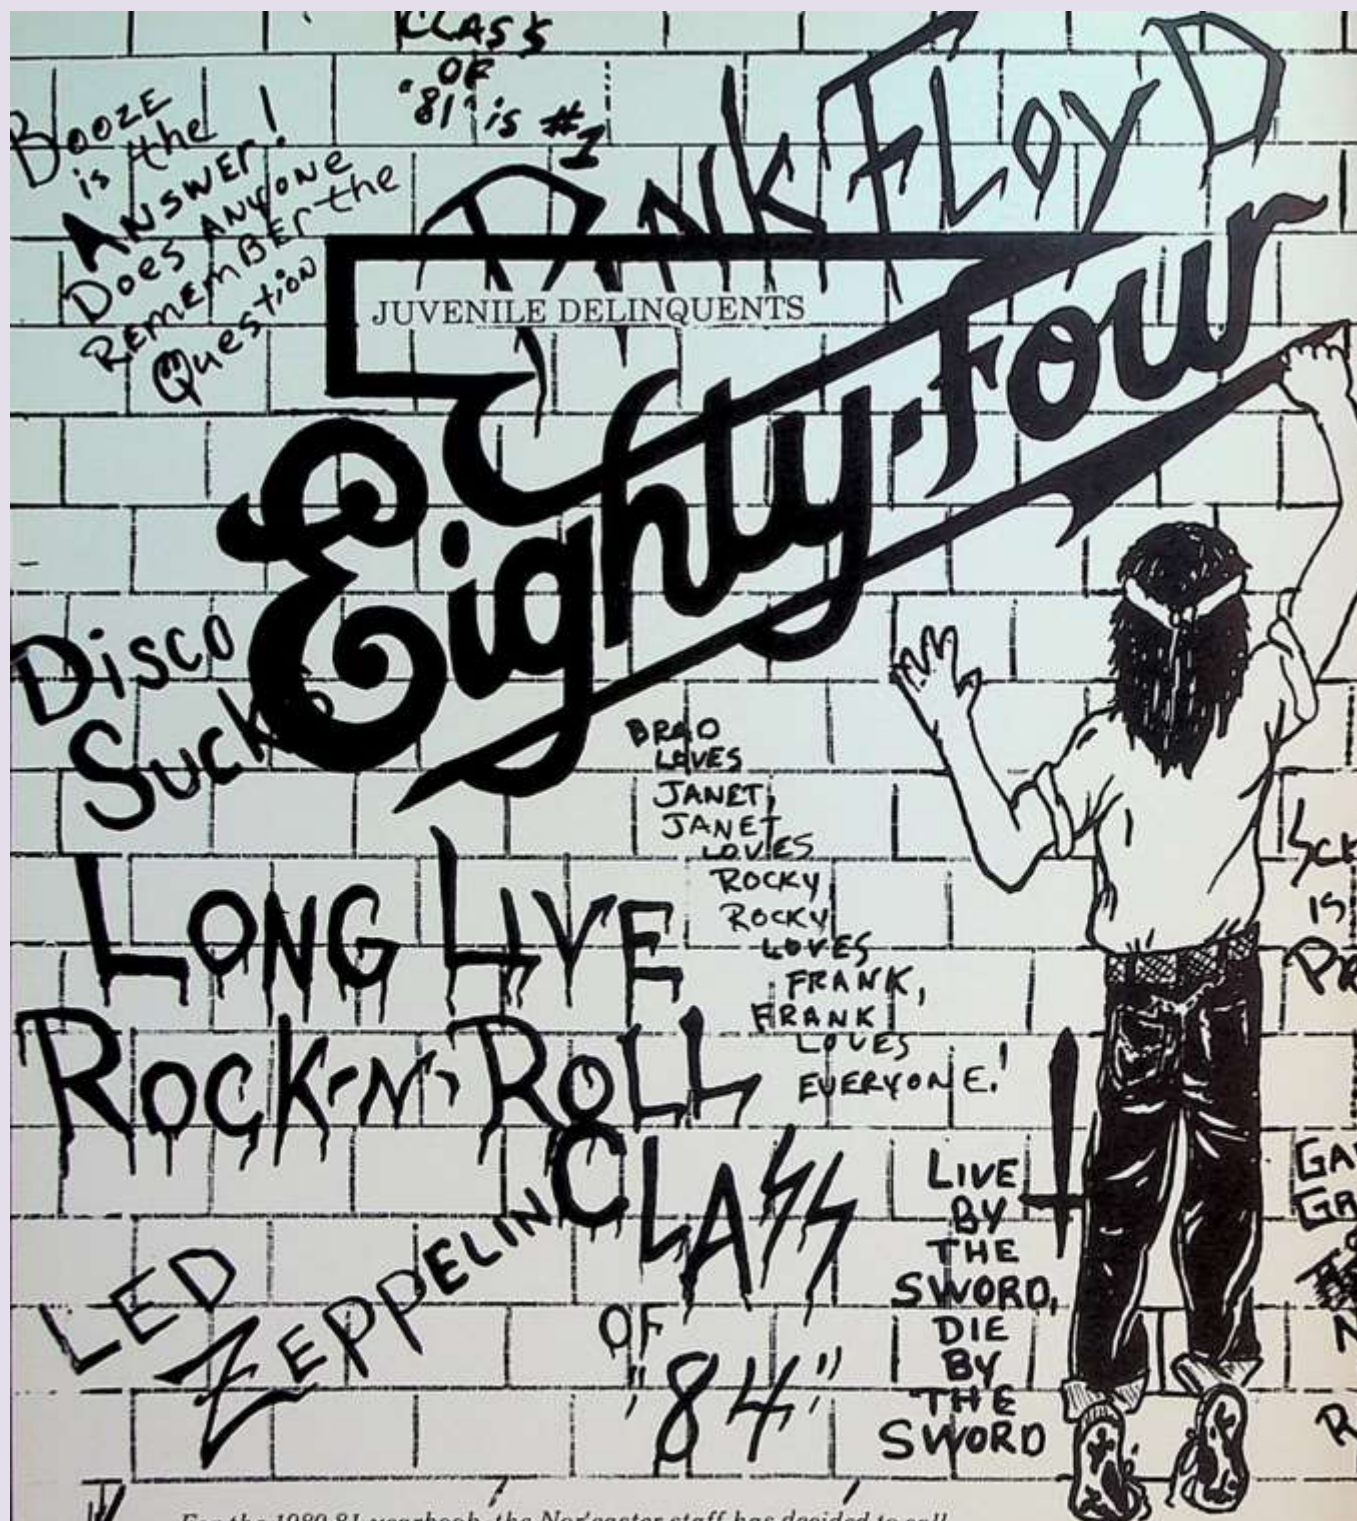 CLASS
OF
"81" is #1
BOOZE
is the
ANSWER!
DOES ANYONE
REMEMBER the
Question
PINK FLOYD
JUVENILE DELINQUENTS
Eighty-Four
Disco
Sucks
BRAD
LOVES
JANET,
JANET
LOVES
ROCKY,
ROCKY
LOVES
FRANK,
FRANK
LOVES
EVERYONE!
LONG LIVE
ROCK-N-ROLL
LED
ZEPPELIN
CLASS
OF
"84"
LIVE
BY
THE
SWORD,
DIE
BY
THE
SWORD
IS
For the 1980-81 yearbook, the Nor'easter staff has decided to call